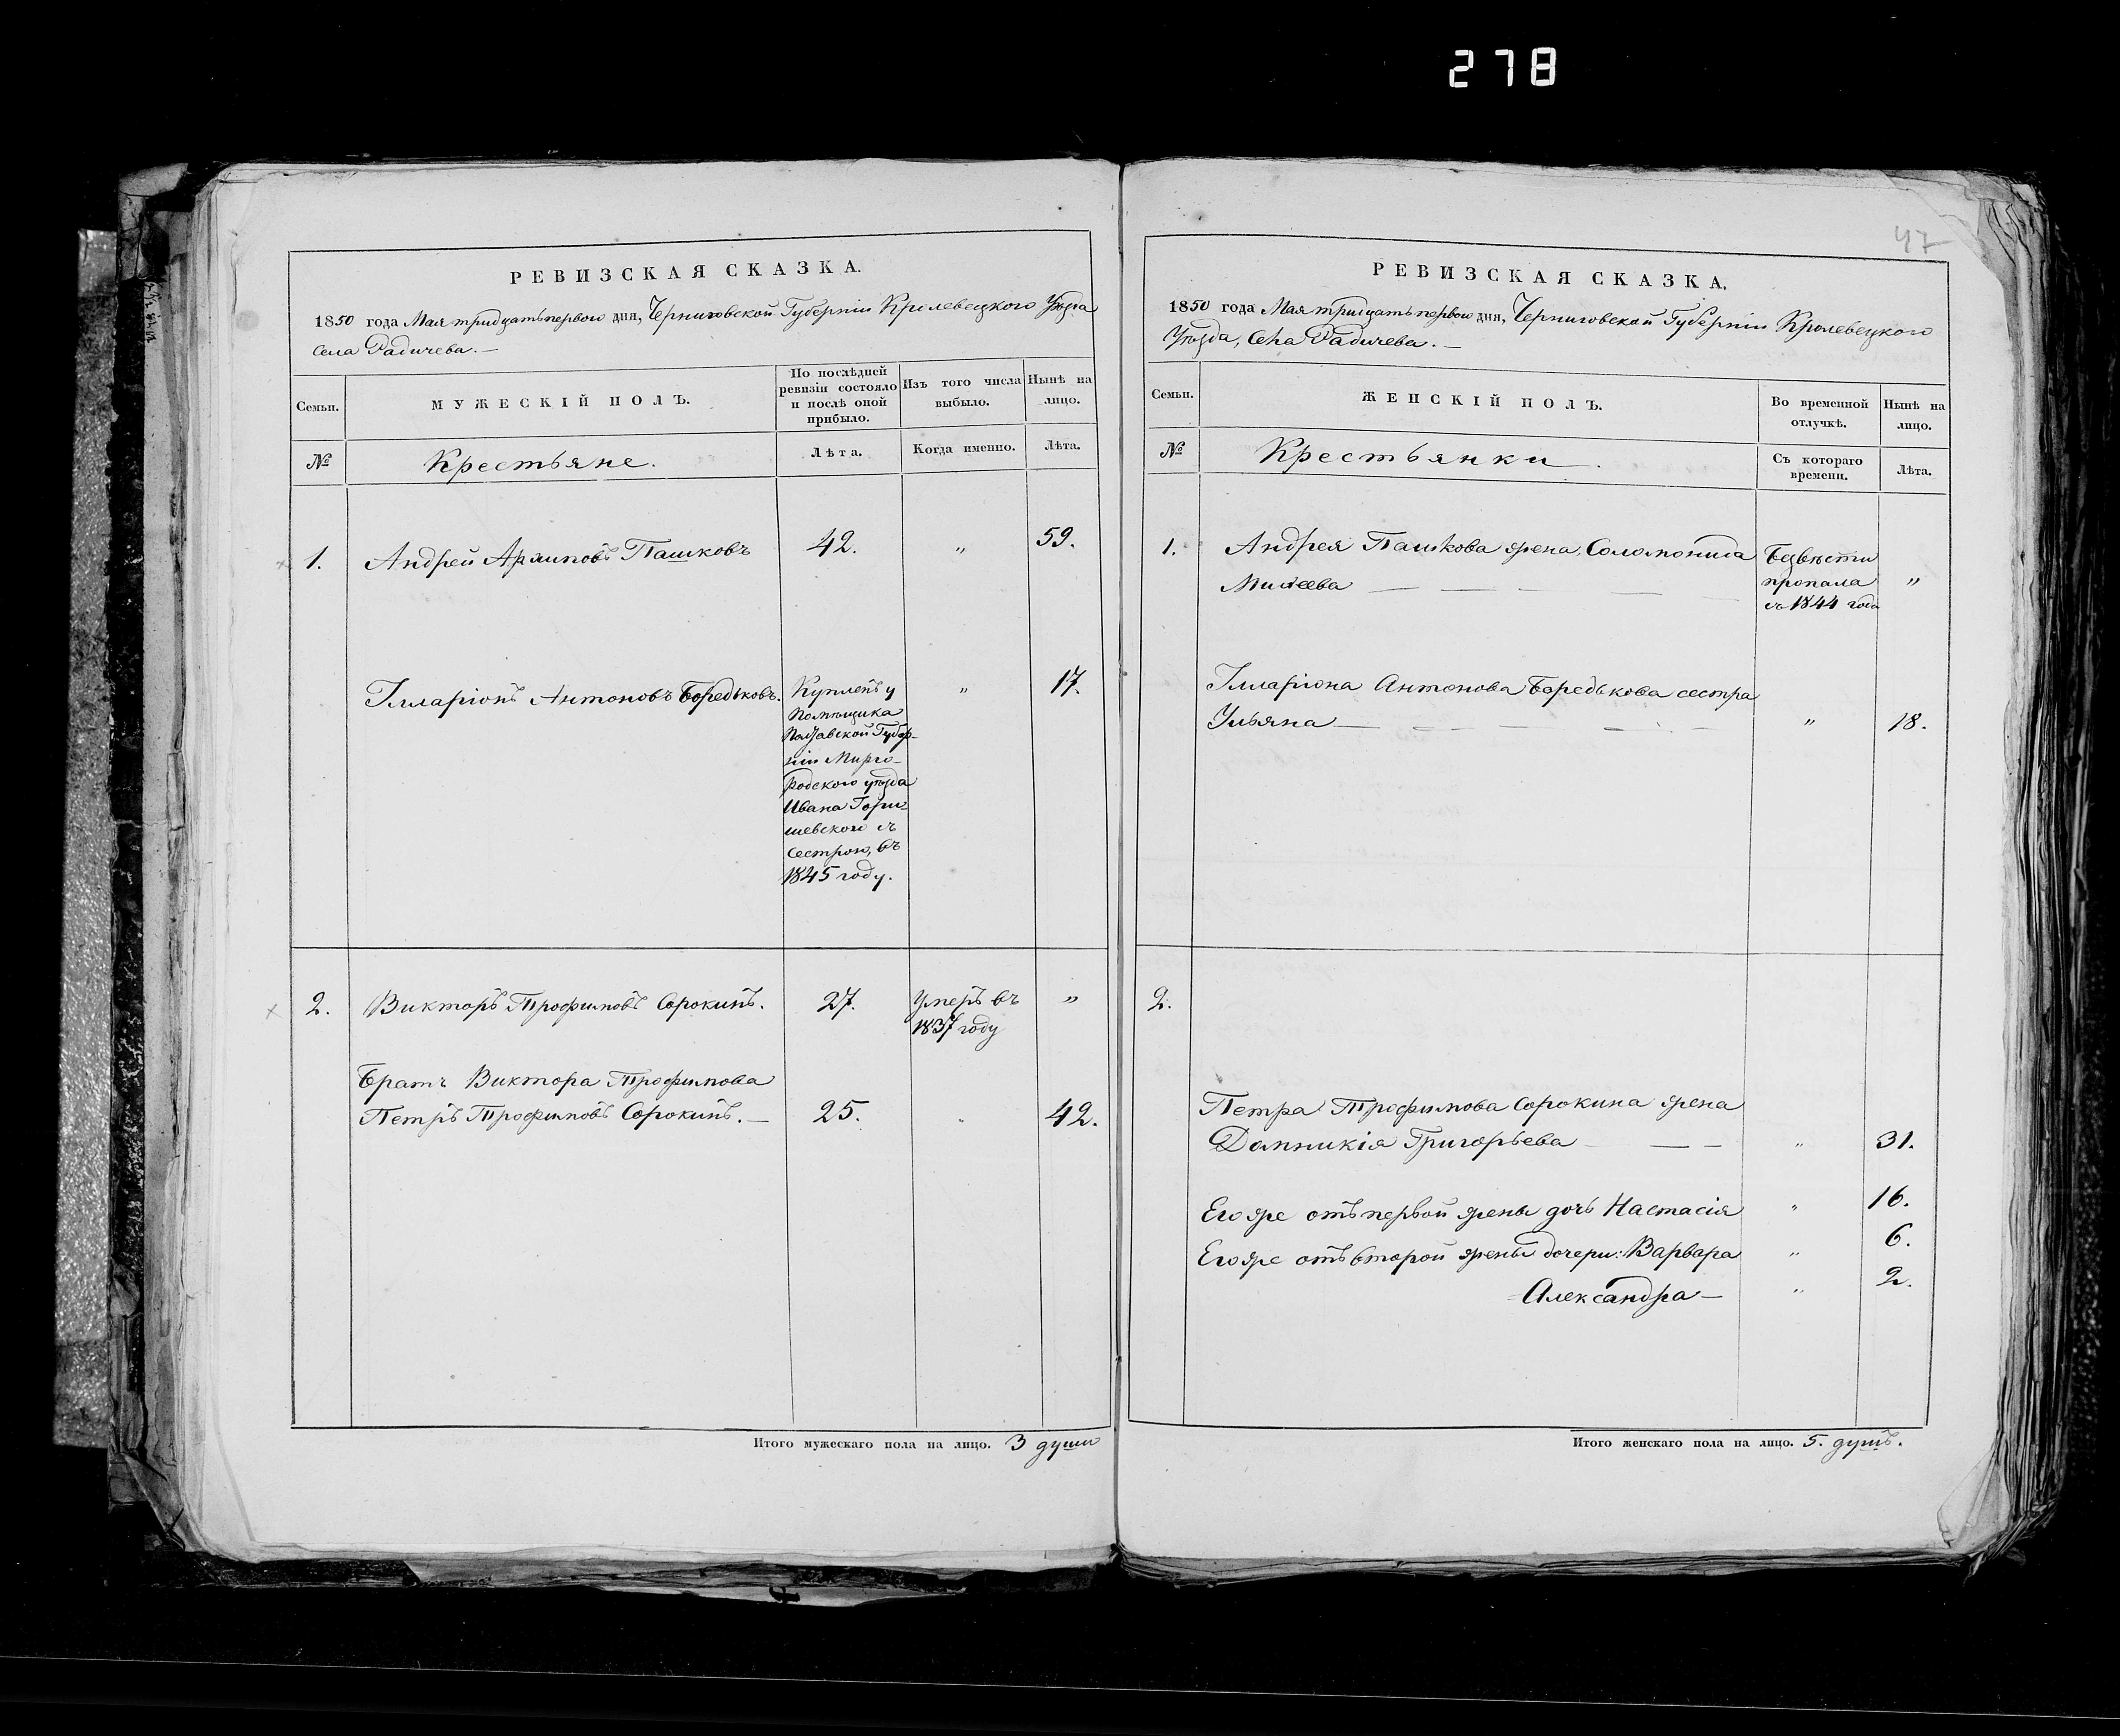 278
РЕВИЗСКАЯ СКАЗКА.
1850 года Мая тридцать первого дня, Черниговской Губерніи Кролевецкого Уѣзда
села Радичева. —
Семьи.
МУЖЕСКІЙ ПОЛЪ.
По послѣдней
ревизіи состояло
и послѣ оной
прибыло.
Изъ того числа
выбыло.
Нынѣ на
лицо.
№
Крестьяне.
Лѣта.
Когда именно.
Лѣта.
1. Андрей Архиповъ Пашковъ 42. „ 59.
Илларіонъ Антоновъ Боредьковъ. Купленъ у „ 17.
помѣщика
Полтавской Губер-
ніи Мирго-
родского уѣзда
Ивана
съ
сестрою, въ
1845 году.
2. Викторъ Трофимовъ Сорокинъ. 27. Умеръ въ „
1837 году
Братъ Виктора Трофимова
Петръ Трофимовъ Сорокинъ. — 25. „ 42.
Итого мужескаго пола на лицо. 3 души
47
РЕВИЗСКАЯ СКАЗКА.
1850 года Мая тридцать первого дня, Черниговской Губерніи Кролевецкого
Уѣзда, села Радичева. —
Семьи.
ЖЕНСКІЙ ПОЛЪ.
Во временной
отлучкѣ.
Нынѣ на
лицо.
№
Крестьянки.
Съ котораго
времени.
Лѣта.
1. Андрея Пашкова жена Соломонида Безвѣсти
Михеева — — — — пропала „
съ 1844 года
Илларіона Антонова Боредькова сестра
Ульяна — — — — „ 18.
2.
Петра Трофимова Сорокина жена
Домникія Григорьева — — „ 31.
Его же отъ первой жены дочь Настасія „ 16.
Его же отъ второй жены дочери: Варвара „ 6.
Александра — „ 2.
Итого женскаго пола на лицо. 5. душъ.